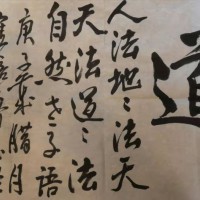 道
人法地〻法天
天法道〻法
自然老子語
庚子歲臘月